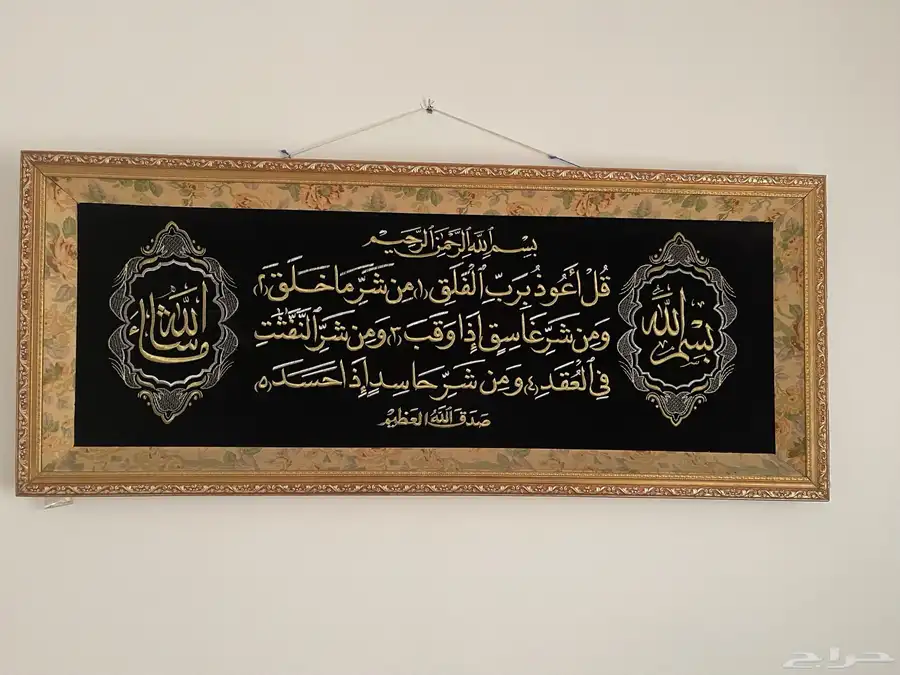 بِسْمِ ٱللَّهِ ٱلرَّحْمَنِ ٱلرَّحِيمِ
قُلْ أَعُوذُ بِرَبِّ ٱلْفَلَقِ (١) مِن شَرِّ مَا خَلَقَ (٢)
وَمِن شَرِّ غَاسِقٍ إِذَا وَقَبَ (٣) وَمِن شَرِّ ٱلنَّفَّٰثَٰتِ
فِي ٱلْعُقَدِ (٤) وَمِن شَرِّ حَاسِدٍ إِذَا حَسَدَ (٥)
صَدَقَ ٱللَّهُ ٱلعَظِيمْ
بسم الله
ماشاء الله
حراج